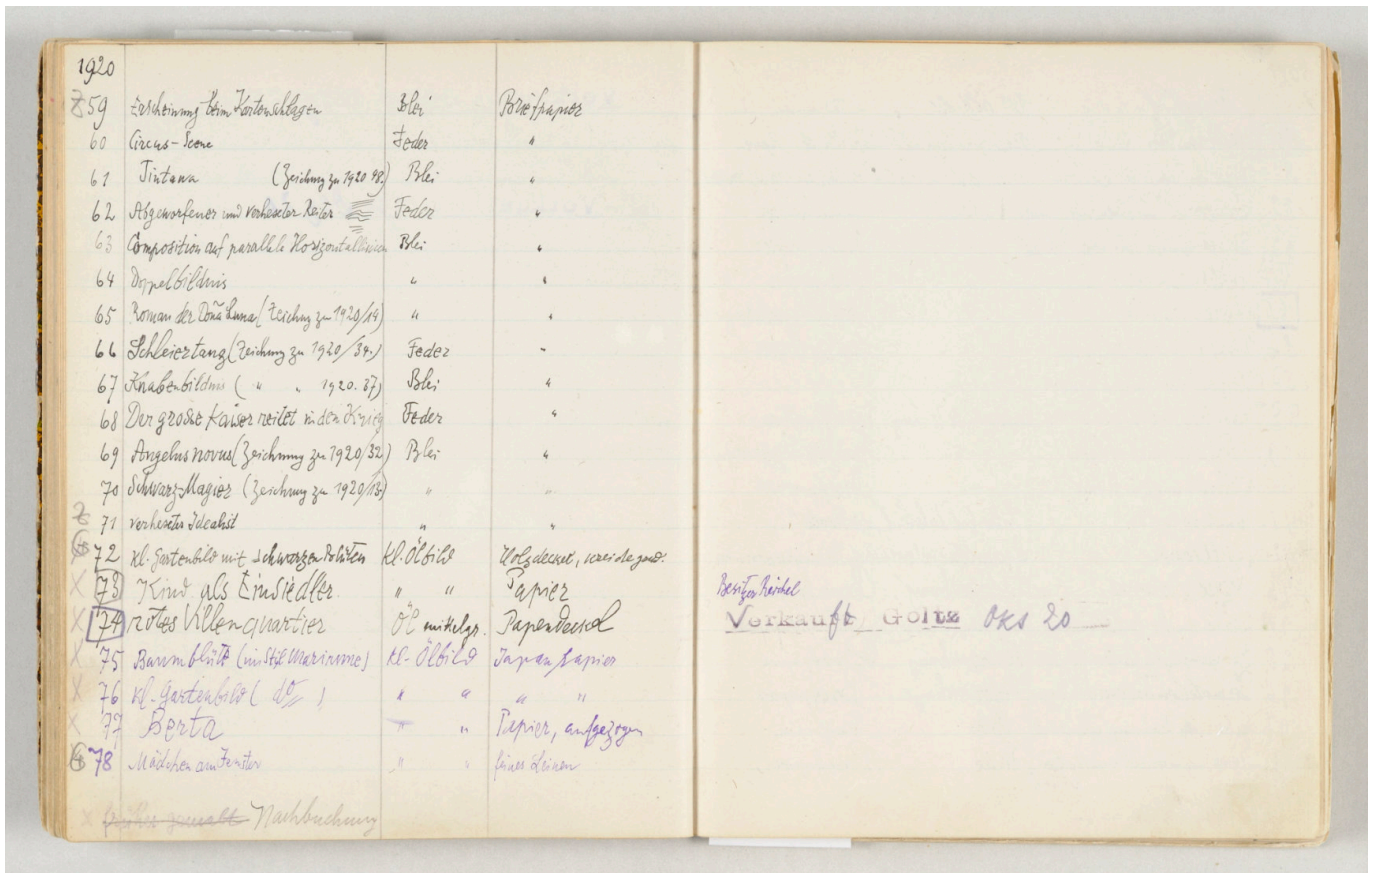 1920
Z 59 Erscheinung beim Kartenschlagen Blei Briefpapier
60 Circus-Scene Feder "
61 Tintawa (Zeichnung zu 1920 98.) Blei "
62 Abgeworfener und verhexter Reiter Feder "
63 Composition auf parallele Horizontallinien Blei "
64 Doppelbildnis " "
65 Roman der Doña Luna (Zeichng zu 1920/19) " "
66 Schleiertanz (Zeichung zu 1920/34.) Feder "
67 Knabenbildnis ( " " 1920. 37) Blei "
68 Der große Kaiser reitet in den Krieg Feder "
69 Angelus novus (Zeichnung zu 1920/32) Blei "
70 Schwarz-Magier (Zeichnung zu 1920/13.) " "
Z 71 verhexter Idealist " "
G 72 kl. Gartenbild mit schwarzen Blüten kl. Ölbild Holzdeckel, kreidegrund.
X 73 Kind als Einsiedler. " " Papier
Besitzer Reichel
X 74 rotes Villenquartier Öl mittelgr. Papendeckel Verkauft Goltz Okt 20
X 75 Baumblüte (im Stil Marinume) kl. Ölbild Japanpapier
X 76 kl. Gartenbild ( do ) " " " "
X 77 Berta " " Papier, aufgezogen
G 78 Mädchen am Fenster " " feines Leinen
X früher gemalt Nachbuchung